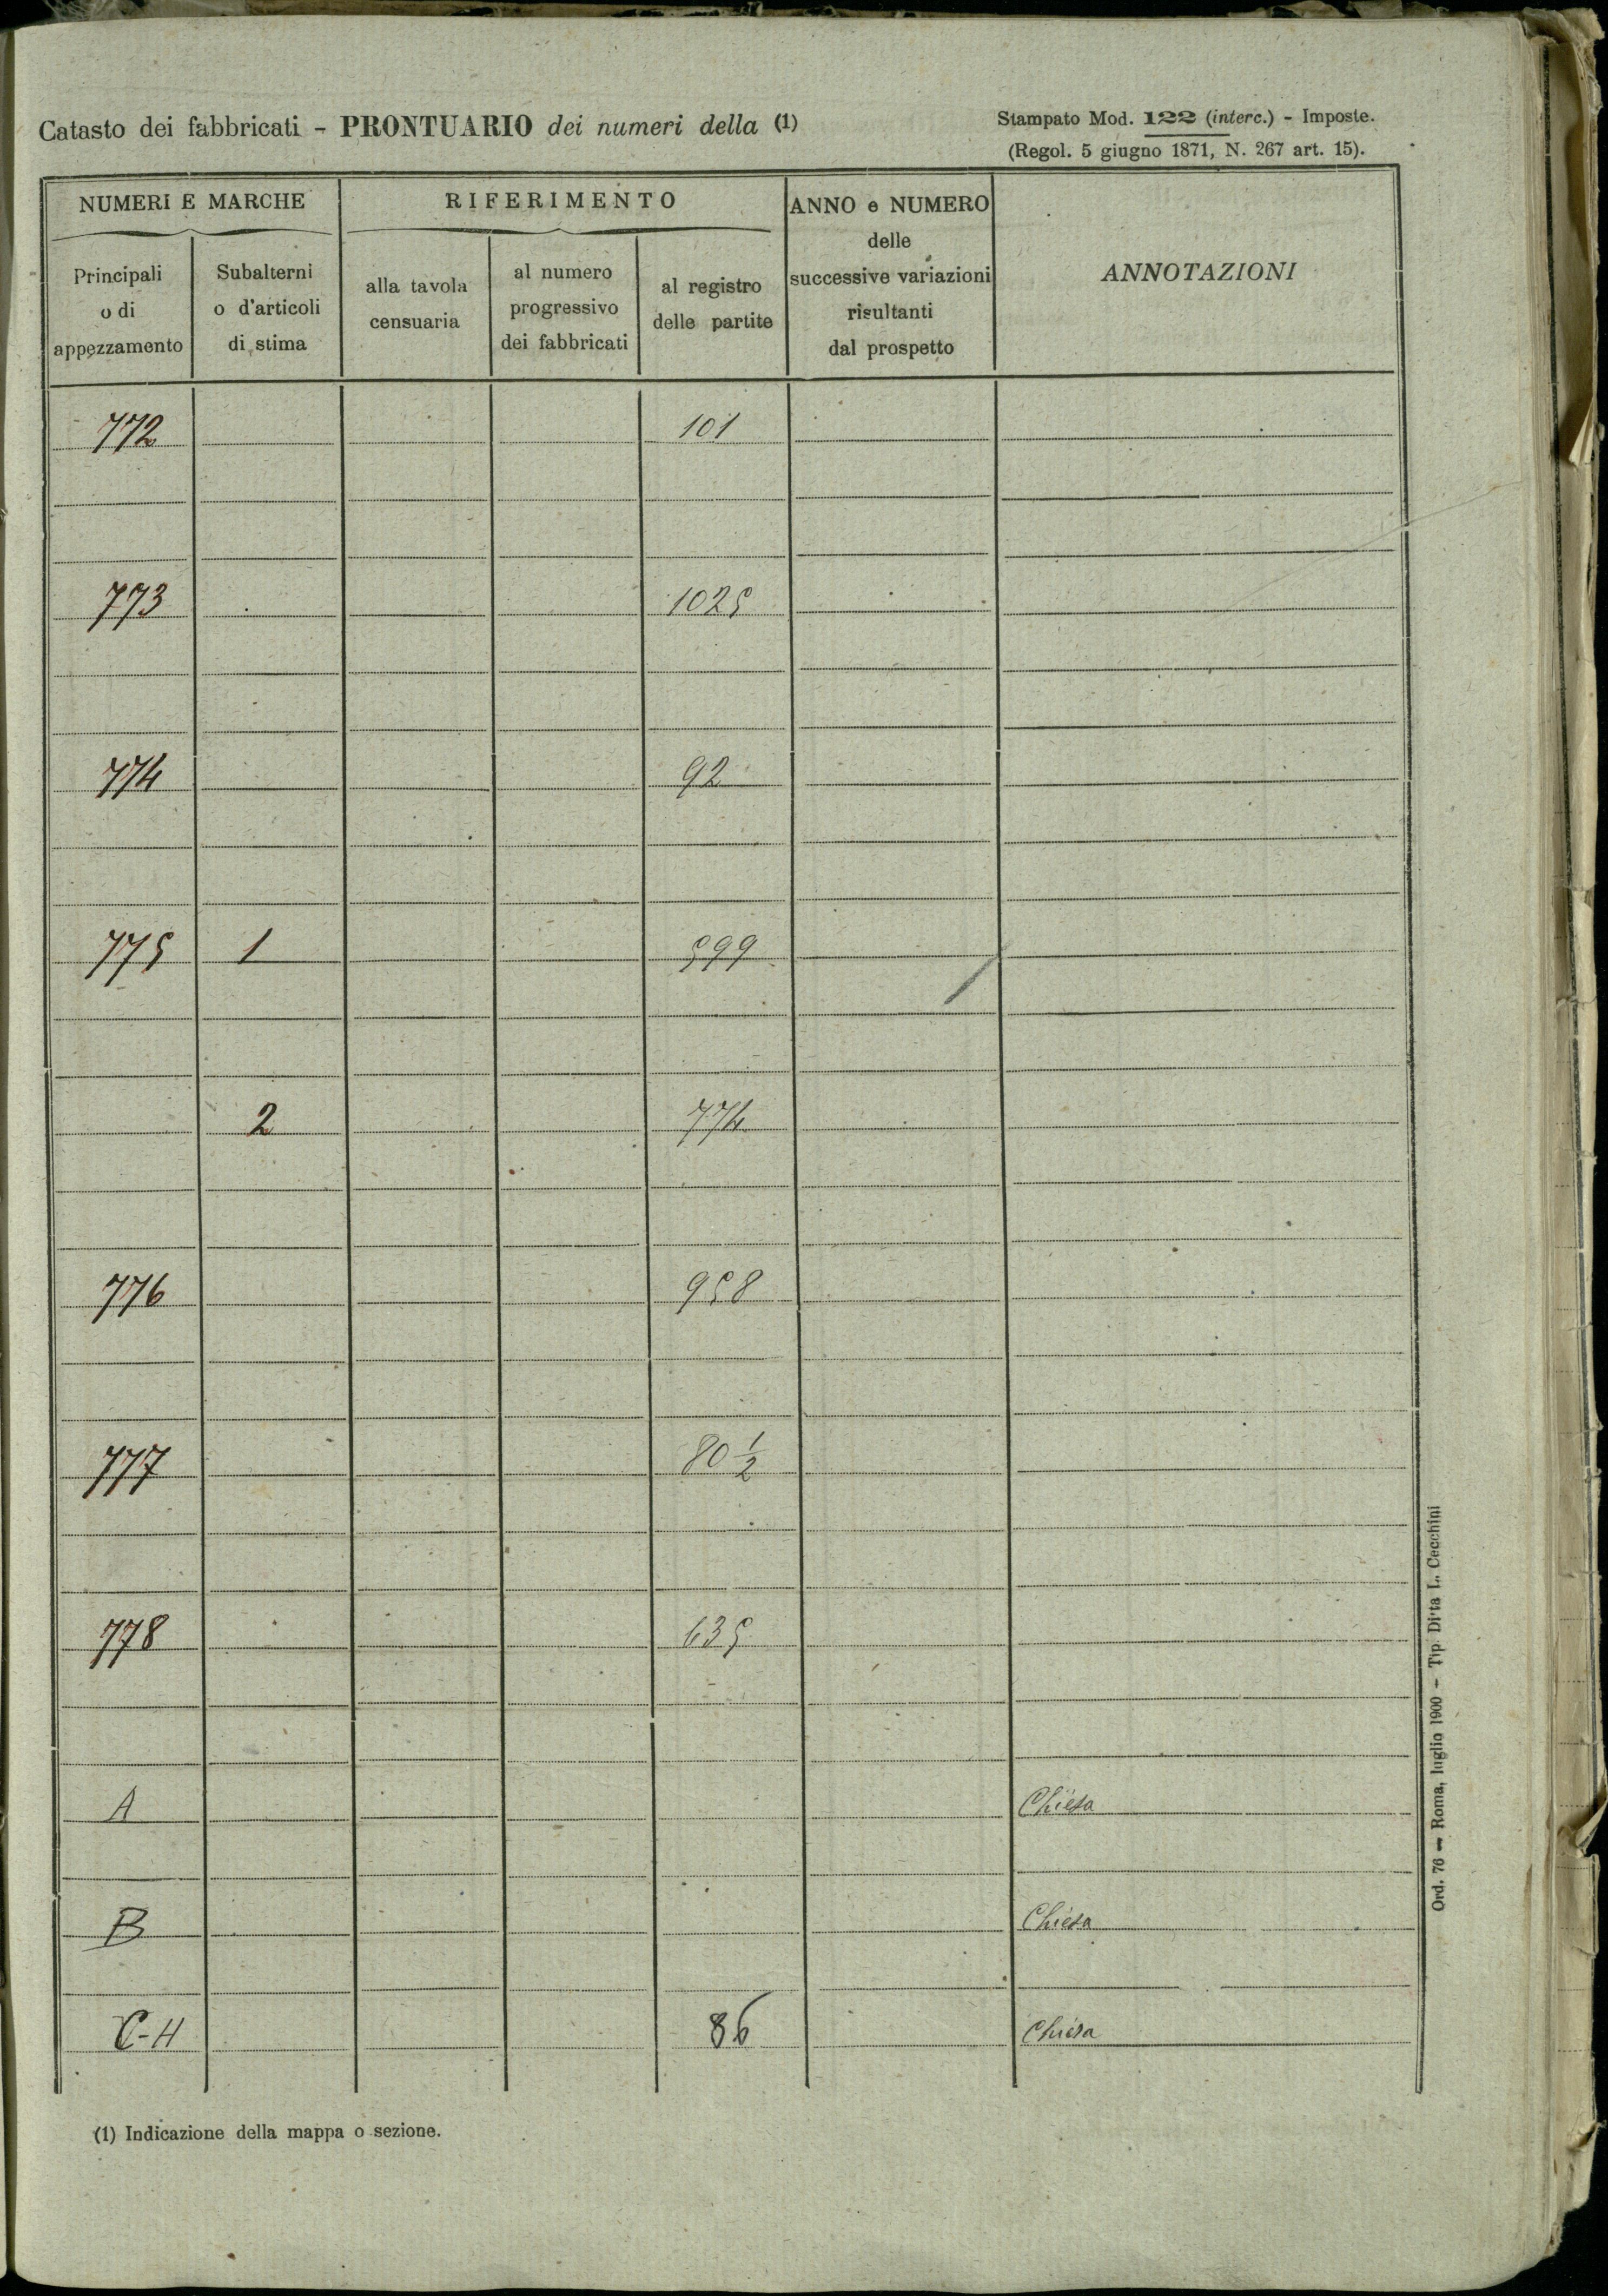 Catasto dei fabbricati - PRONTUARIO dei numeri della (1)
Stampato Mod. 122 (interc.) - Imposte.
(Regol. 5 giugno 1871, N. 267 art. 15).
NUMERI E MARCHE
RIFERIMENTO
ANNO e NUMERO
delle
successive variazioni
risultanti
dal prospetto
ANNOTAZIONI
Principali
o di
appezzamento
Subalterni
o d'articoli
di stima
alla tavola
censuaria
al numero
progressivo
dei fabbricati
al registro
delle partite
772 101
773 1025
774 92
775 1 599
2 774
776 958
777 80 1/2
778 635
A Chiesa
B Chiesa
C-H 86 Chiesa
(1) Indicazione della mappa o sezione.
Ord. 76 — Roma, luglio 1900 - Tip. Ditta L. Cecchini